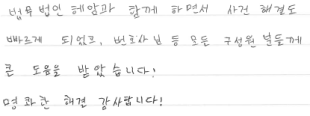 법무법인 테암과 함께 하면서 사건 해결도
빠르게 되었고, 변호사님 등 모든 구성원 분들께
큰 도움을 받았습니다!
명쾌한 해결 감사합니다!